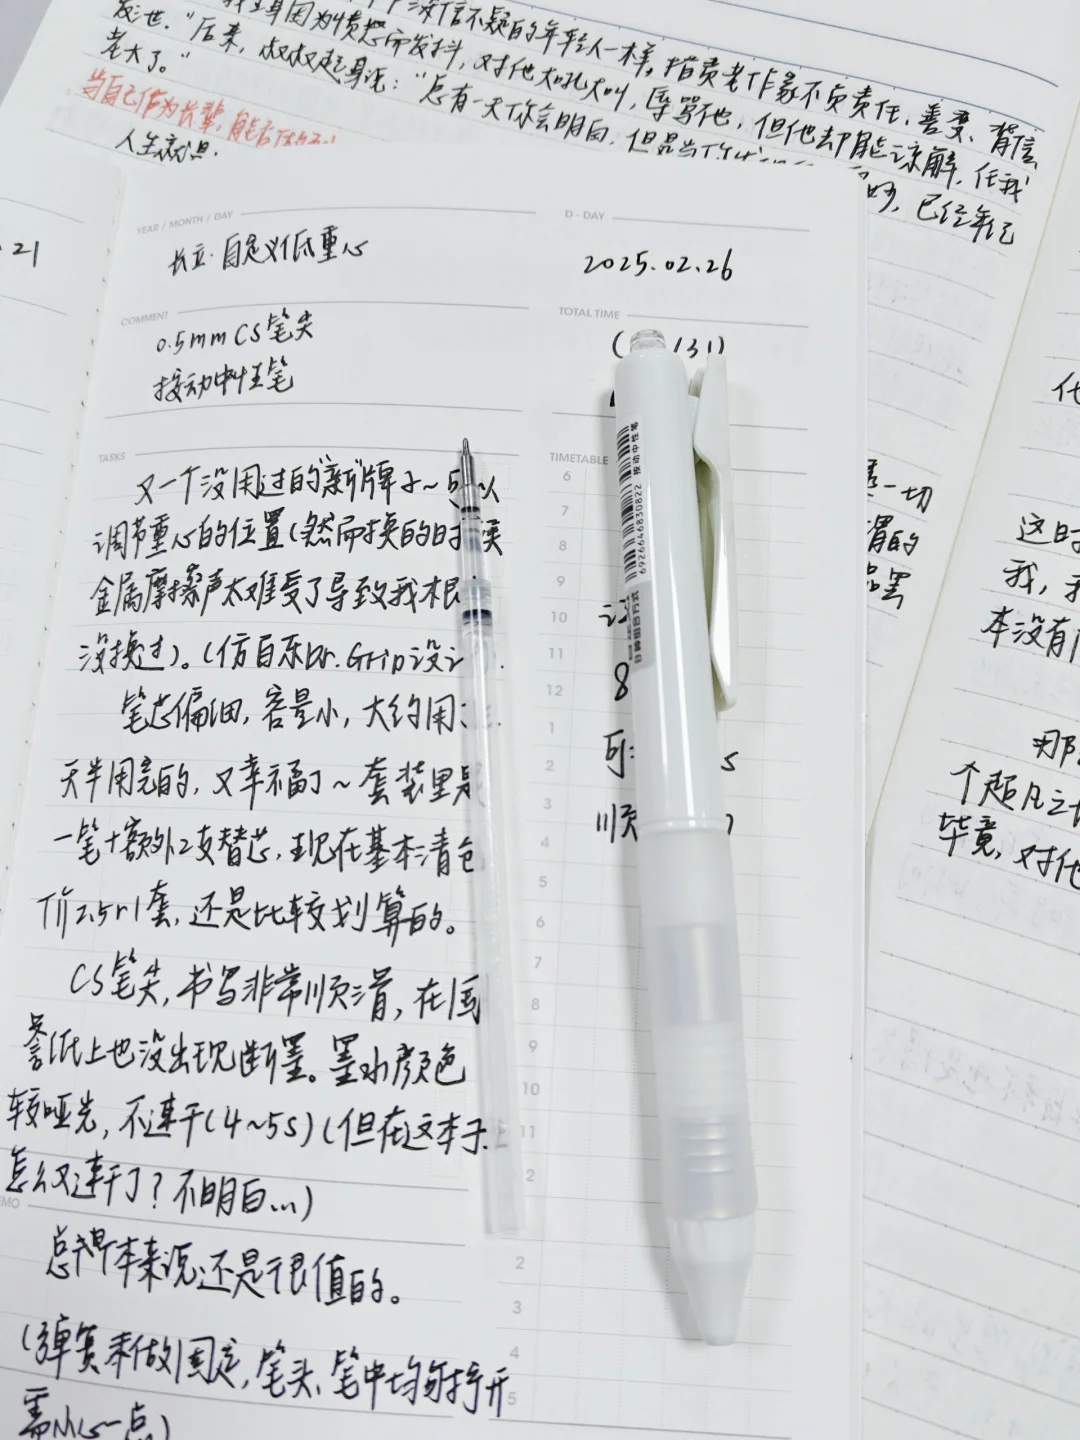 发泄。"后来，叔叔起身说："总有一天你会明白，但是当
老大了。"
我全身因为愤怒而发抖，对他大吼大叫，辱骂他，但他却能谅解，任我
深信不疑的年轻人一样，指责老作家不负责任、善变、背信
时，已经年纪
当自己作为长辈，能否
人生
21
YEAR / MONTH / DAY
D - DAY
长立·自定义低重心
2025.02.26
COMMENT
TOTAL TIME
0.5mm CS笔尖
按动中性笔
131)
TASKS
TIMETABLE
又一个没用过的"新"牌子~可以
调节重心的位置(然而换的时候
金属摩擦声太难受了导致我根
没换过)。(仿百乐Dr.Grip设计
笔芯偏细，容量小，大约用
天半用完的，又幸福了~套装里是
一笔+额外2支替芯，现在基本清仓
价2.5r1套，还是比较划算的。
CS笔尖，书写非常顺滑，在国
誉纸上也没出现断墨。墨水颜色
较哑光，不速干(4~5s)(但在这本子上
怎么又速干了？不明白...)
MEMO
总得来说还是很值的。
(弹簧未做固定，笔头、笔中均可拧开
需小心一点)
6
7
8
9
10
11
12
1
2
3
4
5
6
7
8
9
10
11
2
2
3
4
5
8
可
s
顺
按动中性笔
6926646830822
一切
谓的
代
这时
我，
本没有
那
个超凡之
毕竟，对他